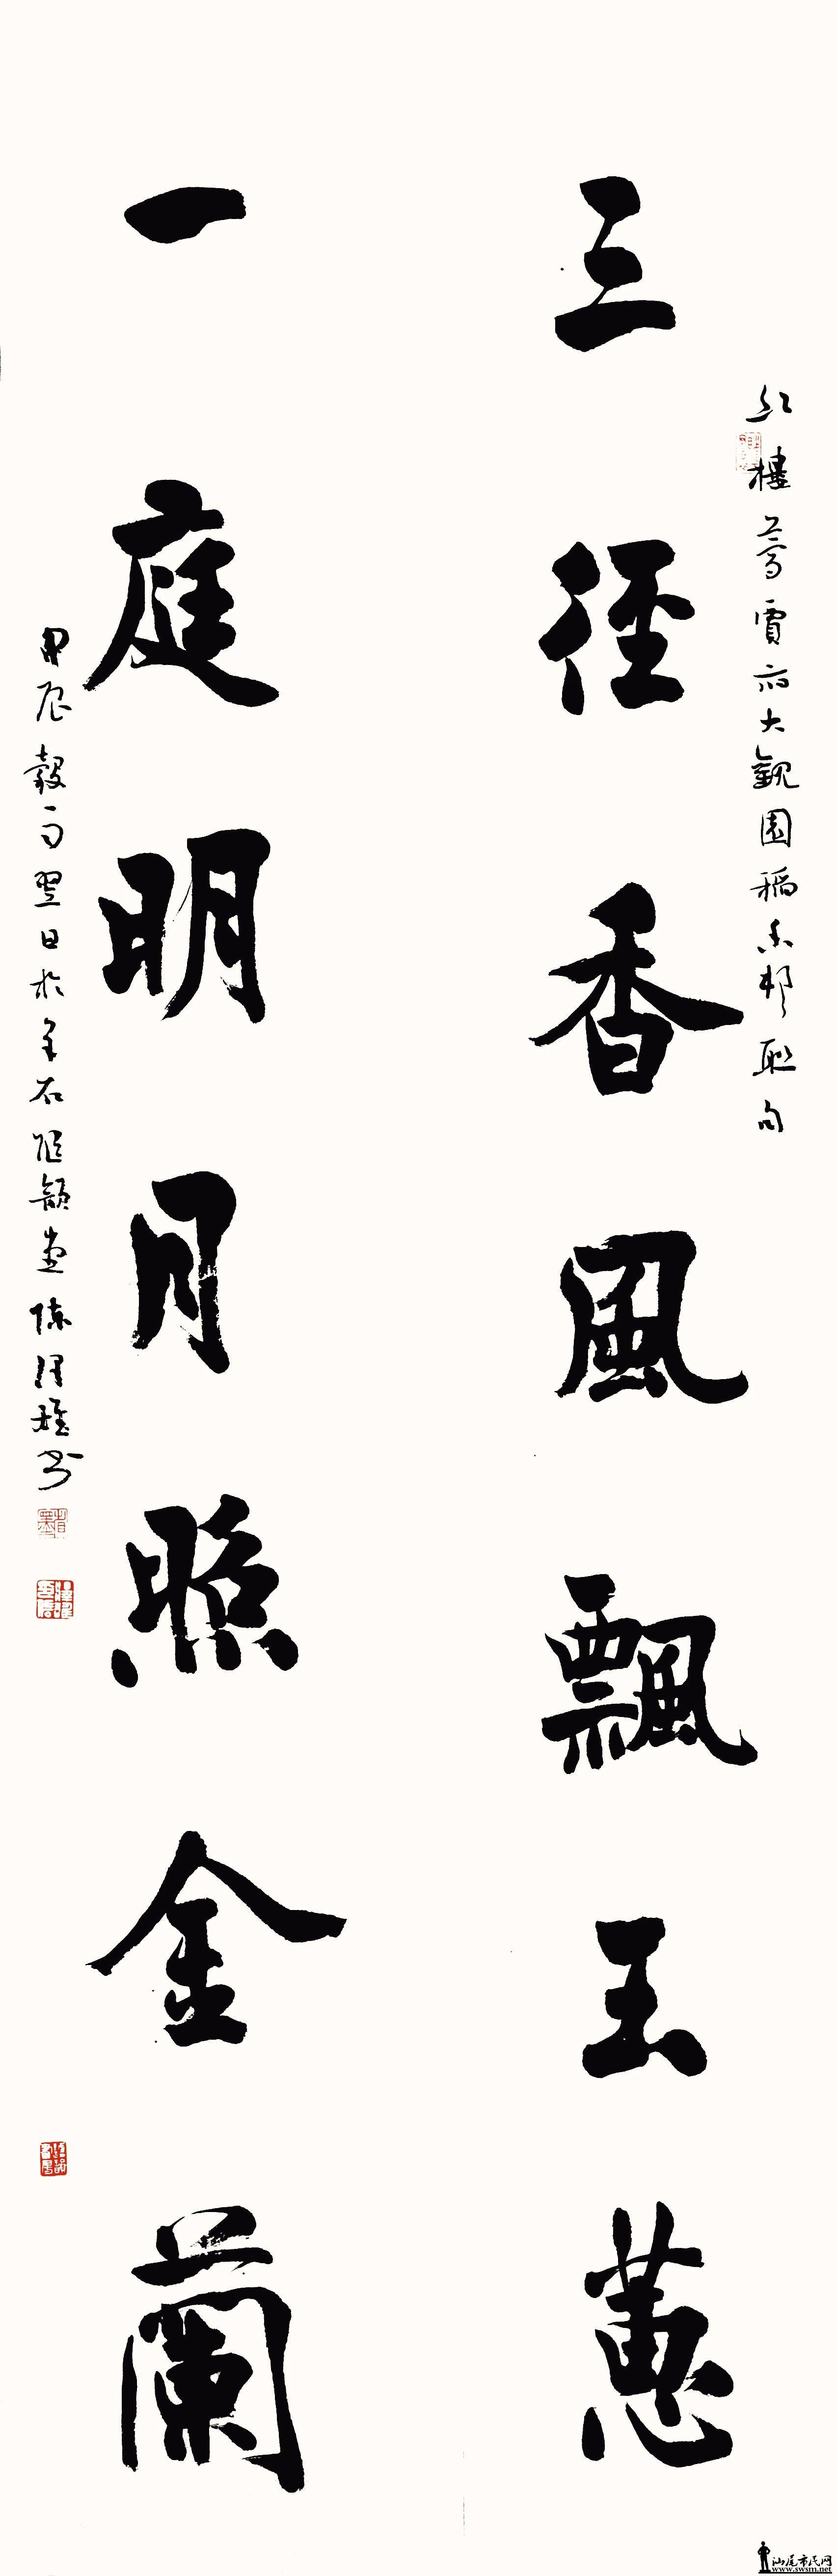 紅樓夢賈府大觀園稻香村聯句
三徑香風飄玉蕙
一庭明月照金蘭
甲辰穀雨翌日於金石陳書
汕尾市民网
www.swsm.net